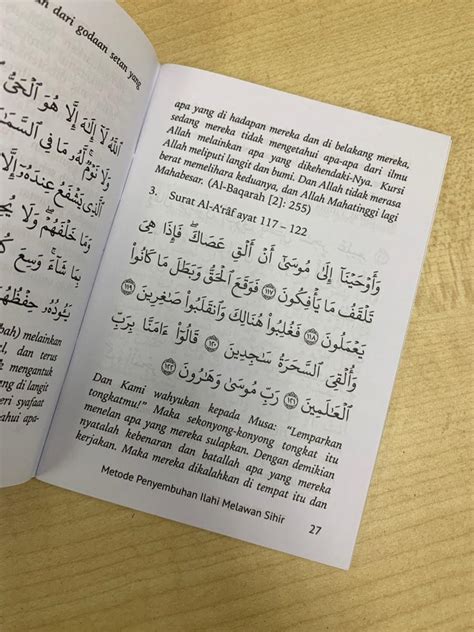 dari godaan setan yang
ٱللَّهُ لَآ إِلَٰهَ إِلَّا هُوَ ٱلْحَىُّ
وَلَا نَوْمٌ ۚ لَّهُۥ مَا فِى
ٱلَّذِى يَشْفَعُ عِندَهُۥٓ
وَمَا خَلْفَهُمْ ۖ وَلَا
بِمَا شَآءَ ۚ وَسِعَ
يَـُٔودُهُۥ حِفْظُهُمَا
melainkan
dan terus
mengantuk
di langit
syafaat
apa-
apa yang di hadapan mereka dan di belakang mereka,
sedang mereka tidak mengetahui apa-apa dari ilmu
Allah melainkan apa yang dikehendaki-Nya. Kursi
Allah meliputi langit dan bumi. Dan Allah tidak merasa
berat memelihara keduanya, dan Allah Mahatinggi lagi
Mahabesar. (Al-Baqarah [2]: 255)
3. Surat Al-A'râf ayat 117 – 122
وَأَوْحَيْنَآ إِلَىٰ مُوسَىٰٓ أَنْ أَلْقِ عَصَاكَ ۖ فَإِذَا هِىَ
تَلْقَفُ مَا يَأْفِكُونَ ١١٧ فَوَقَعَ ٱلْحَقُّ وَبَطَلَ مَا كَانُوا۟
يَعْمَلُونَ ١١٨ فَغُلِبُوا۟ هُنَالِكَ وَٱنقَلَبُوا۟ صَٰغِرِينَ ١١٩
وَأُلْقِىَ ٱلسَّحَرَةُ سَٰجِدِينَ ١٢٠ قَالُوٓا۟ ءَامَنَّا بِرَبِّ
ٱلْعَٰلَمِينَ ١٢١ رَبِّ مُوسَىٰ وَهَٰرُونَ ١٢٢
Dan Kami wahyukan kepada Musa: "Lemparkan
tongkatmu!" Maka sekonyong-konyong tongkat itu
menelan apa yang mereka sulapkan. Dengan demikian
nyatalah kebenaran dan batallah apa yang mereka
kerjakan. Maka mereka dikalahkan di tempat itu dan
Metode Penyembuhan Ilahi Melawan Sihir
27